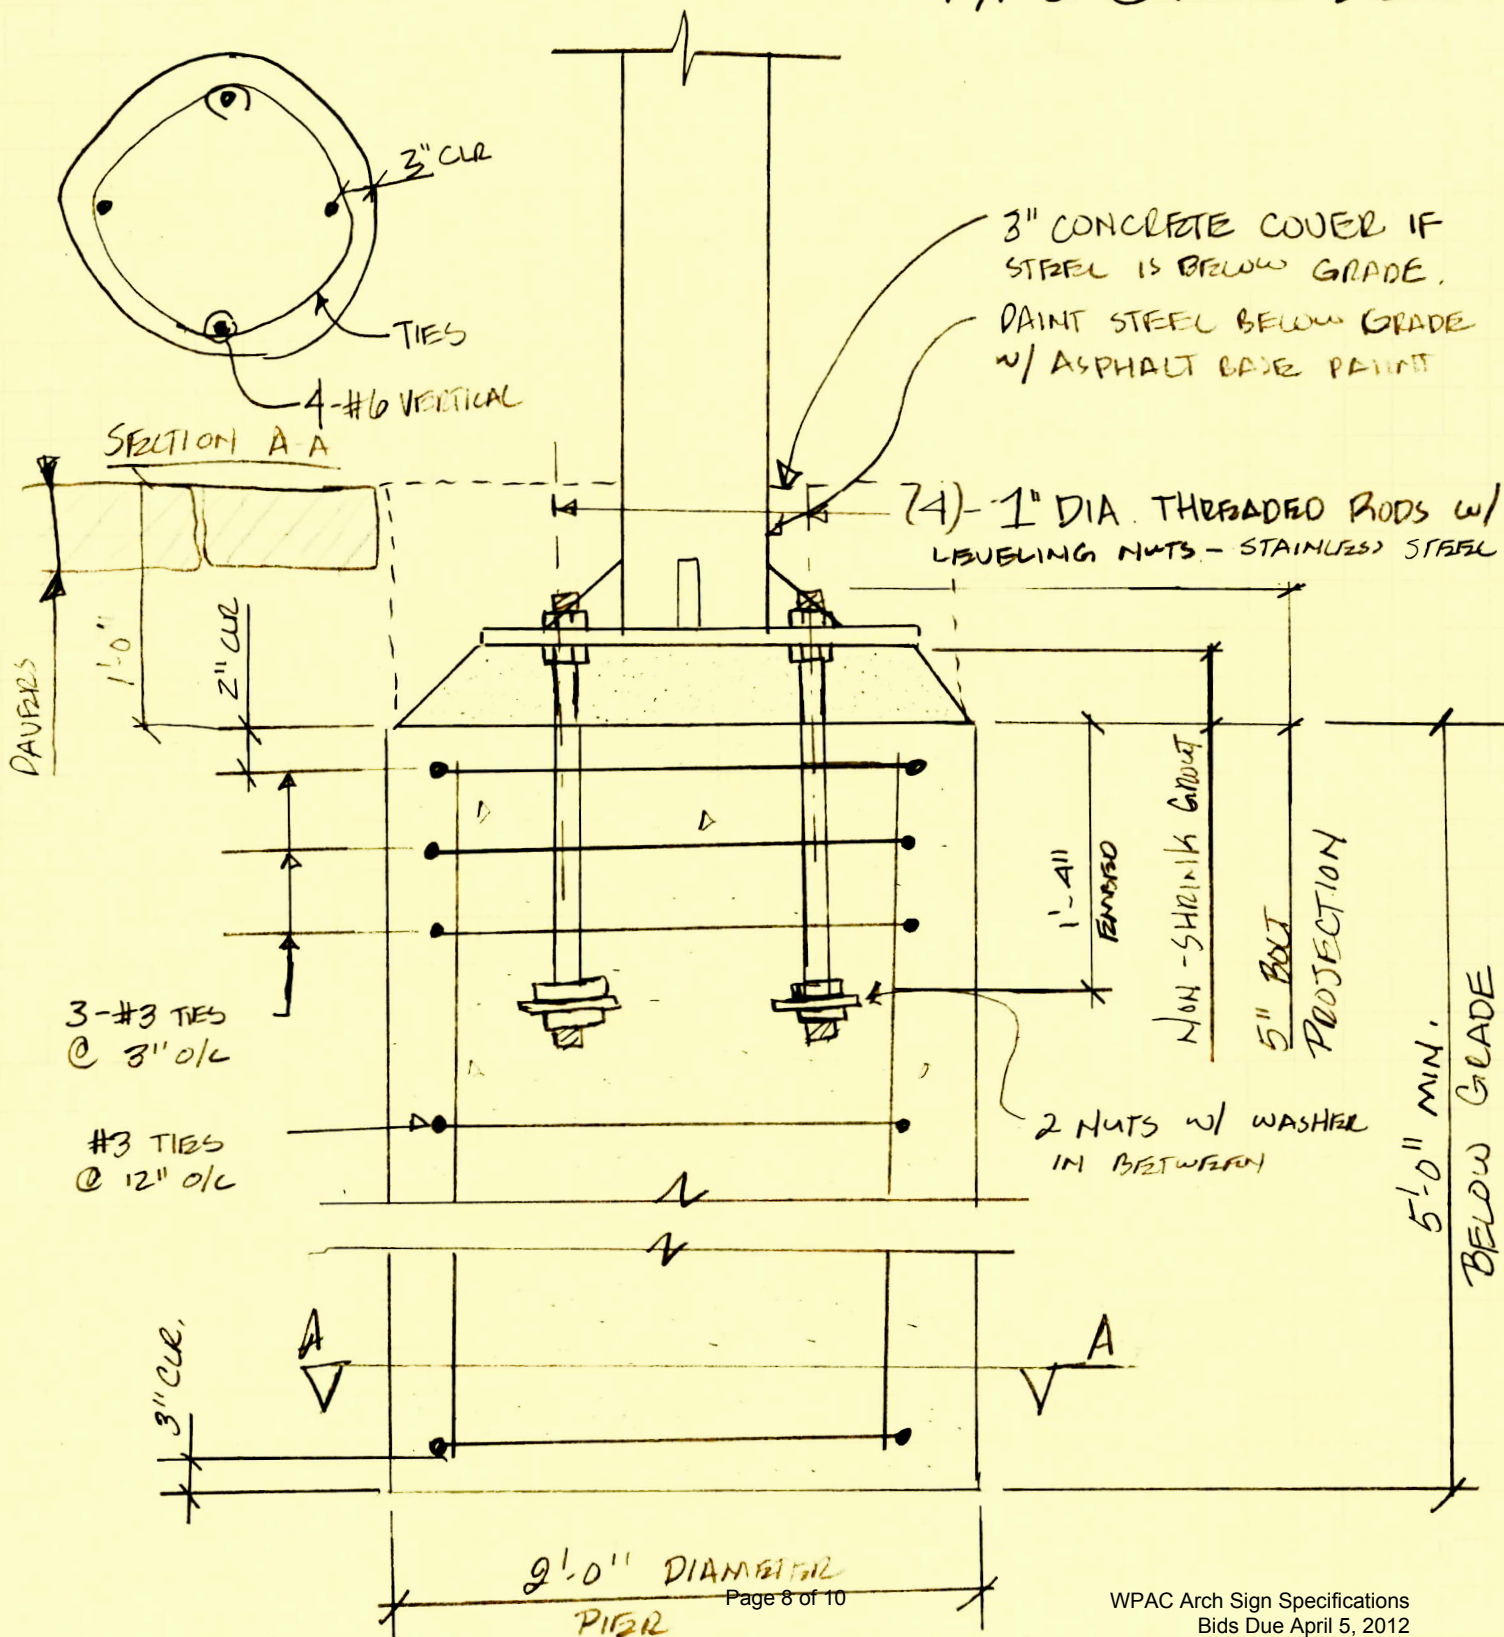 3" CLR
TIES
4-#6 VERTICAL
SECTION A-A
3" CONCRETE COVER IF
STEEL IS BELOW GRADE.
PAINT STEEL BELOW GRADE
W/ ASPHALT BASE PAINT
(4)-1" DIA. THREADED RODS W/
LEVELING NUTS - STAINLESS STEEL
PAVERS
1'-0"
2" CLR
3-#3 TIES
@ 3" O/C
#3 TIES
@ 12" O/C
1'-4"
EMBED
NON-SHRINK GROUT
5" BOLT
PROJECTION
5'-0" MIN.
BELOW GRADE
2 NUTS W/ WASHER
IN BETWEEN
A
A
3" CLR.
2'-0" DIAMETER
PIER
Page 8 of 10
WPAC Arch Sign Specifications
Bids Due April 5, 2012